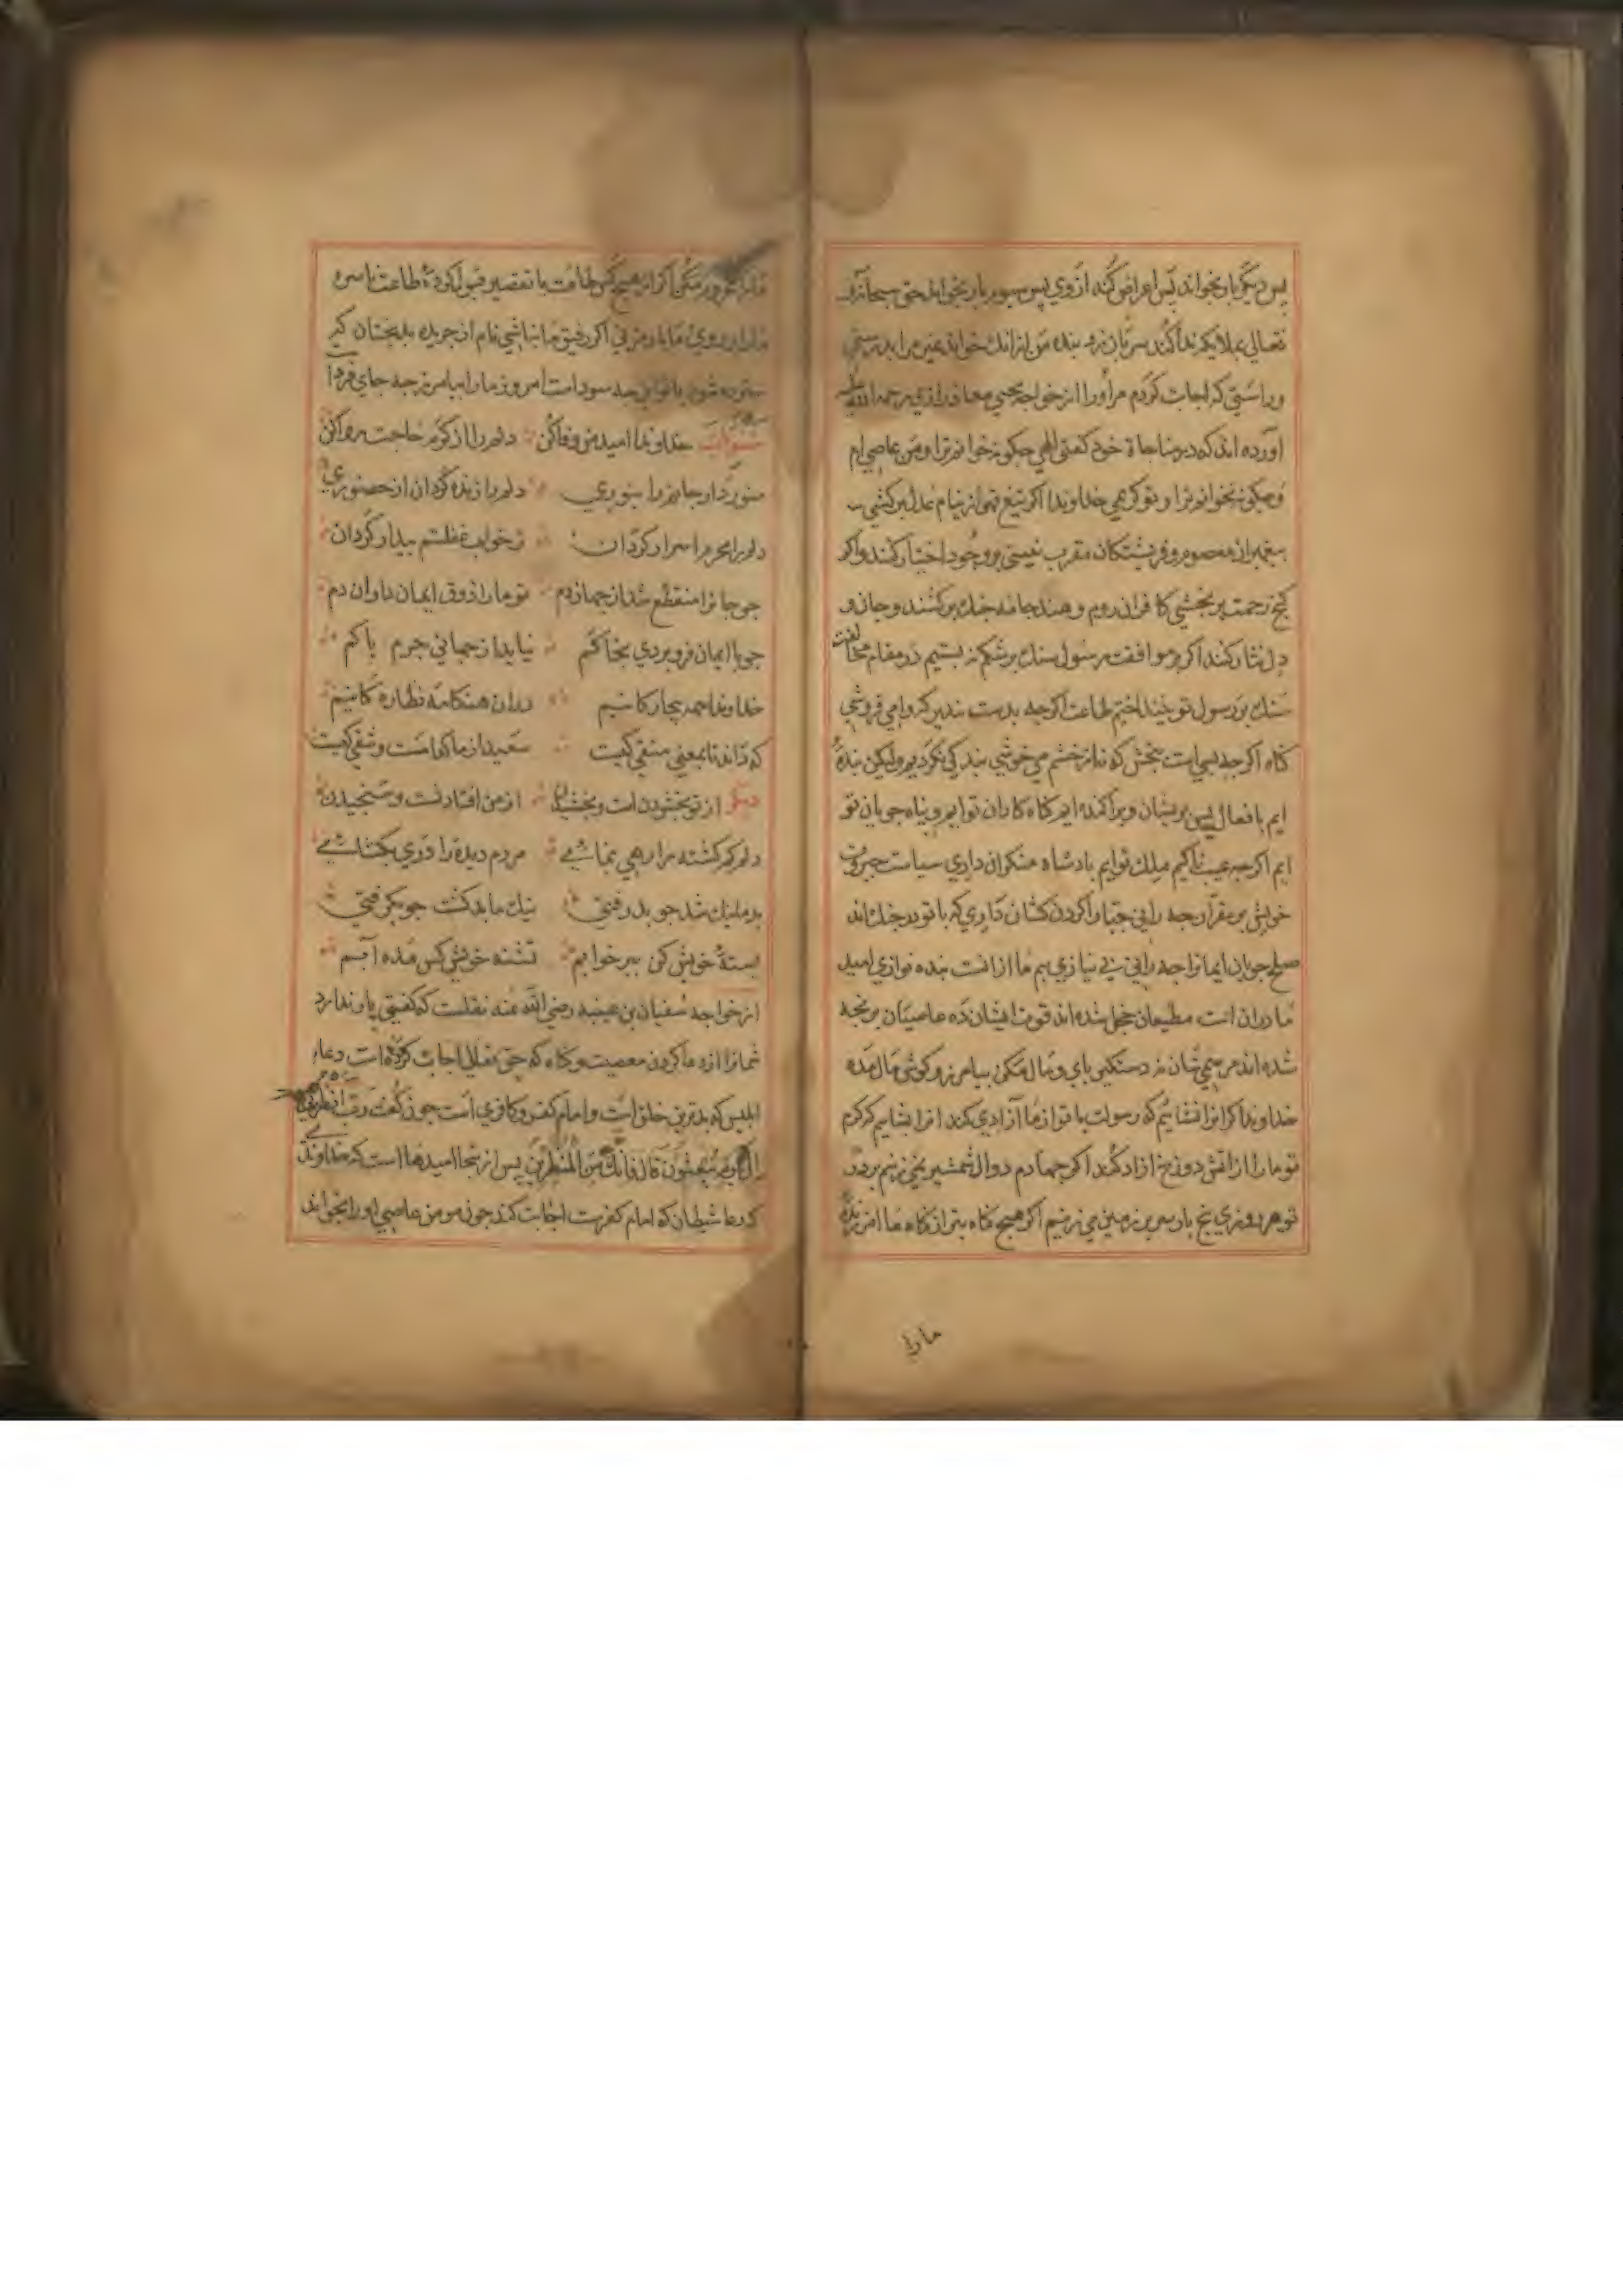 پس دیکر بار بخواند پس اعراض کند از وی پس سیوم بار بخواند حق سبحانه و
تعالی ملایکه ندا کند سر باز نزد بنده من از انک خواند غیر مرا بدرستی
و راستی که اجابت کردم مر او را از خواجه یحیی معاذ رازی رحمه الله
اورده اند که در مناجاة خود کفتی الهی چکونه خوانم ترا و من عاصی ام
و چکونه نخوانم ترا و تو کریمی خداوندا اکر تیغ قهر از نیام عدل برکشی
پیغمبران معصوم و فریشتکان مقرب نیستی بر وجود اختیار کنند و اکر
کنج رحمت بر بخشی کافران روم و هند جامه جنک برکشند و جان و
دل نثار کنند اکر بر موافقت رسول سنک بر شکم نه بستیم در مقام مخالفت
سنک بر رسول تو نینداختیم طاعت اکر چه بدست ندیم که وامی فروشی
کناه اکر چه بسی است ببخش که نه از خشم می خوشی بندکی نکردیم ولیکن بنده
ایم بافعال پس پریشان و پراکنده ایم کناه کاران توایم و پناه جویان تو
ایم اکر چه عیب ناکیم ملک توایم بادشاه منکران داری سیاست جبروت
خویش بر مقران چه رانی جبار اکردن کشان داری که با تو در جنک اند
صلح جویان ایمانرا چه رانی بی نیازی هم ما از انست بنده نوازی امید
ما دران است مطیعان خجل شده اند قوت ایشان ده عاصیان رنجه
شده اند مرهمی شان نه دستکیر بای و مال مکن بیامرز و کوش مال مده
خداوندا اکر انرا نشایم که رسولت با تو از ما آزادی کند انرا بشایم کز کرم
تو ما را از اتش دوزخ ازاد کند اکر جهادم دوال شمشیر نمی زنیم بر در
تو هر روزی پنج بار سر بر زمین می زنیم اکر هیچ کناه بتر از کناه ما امرزیدهٔ
مارا
مکن اکر از هیچ کس طاعت با تقصیر قبول کردهٔ طاعت ناسره
ما را بر روی ما باز مزن اکر رفیق ما نباشی نام از جریده بدبختان که
سترده شود با توانی چه سود است امروز ما را بیامرز چه جای فردا
خداوندا امید من وفا کن دلم را از کرم حاجت روا کن
منور دار جانم را بنوری دلم را زنده کردان از حضوری
دلم را محرم اسرار کردان ز خواب غفلتم بیدار کردان
چو جانرا منقطع شد از جهان دم تو ما را ذوق ایمان دار ان دم
چو با ایمان فرو بردی بخاکم نیاید از جهانی جرم باکم
خداوندا همه بیچارکانیم دران هنکامه نظاره کانیم
که داند تا بمعنی متقی کیست سعید از ما کدامست و شقی کیست
دیکر از تو بخشودن است و بخشیدن از من افتادنست و شخیدن
دلم کم کشته مرا رهی بنمای مردم دیده را دری بکشای
بد ما نیک شد چو پذرفتی نیک ما بد کشت چو بکرفتی
بستهٔ خویش کن ببر خوابم تشنه خویش کن مده آبم
از خواجه سفیان بن عیینه رضی الله عنه نقلست که کفتی باز ندارد
شما را از دعا کردن معصیت و کناه که حق تعالی اجابت کرده است دعاء
ابلیس که بدترین خلق است و امام کفر و کافری است چون کفت رب انظرنی
الی یوم یبعثون قال فانک من المنظرین پس از ینجا امیدها است که خداوند
که دعا شیطان که امام کفرست اجابت کند چون مومن عاصی او را بخواند